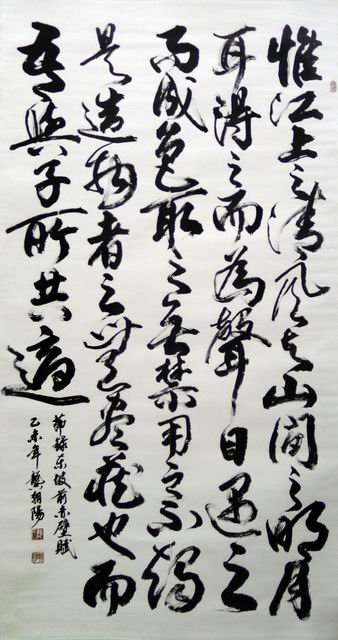 惟江上之清風与山間之明月
耳得之而為聲目遇之
而成色取之無禁用之不竭
是造物者之無盡藏也而
吾與子所共適
節錄东坡前赤壁賦
乙未年龔朝陽